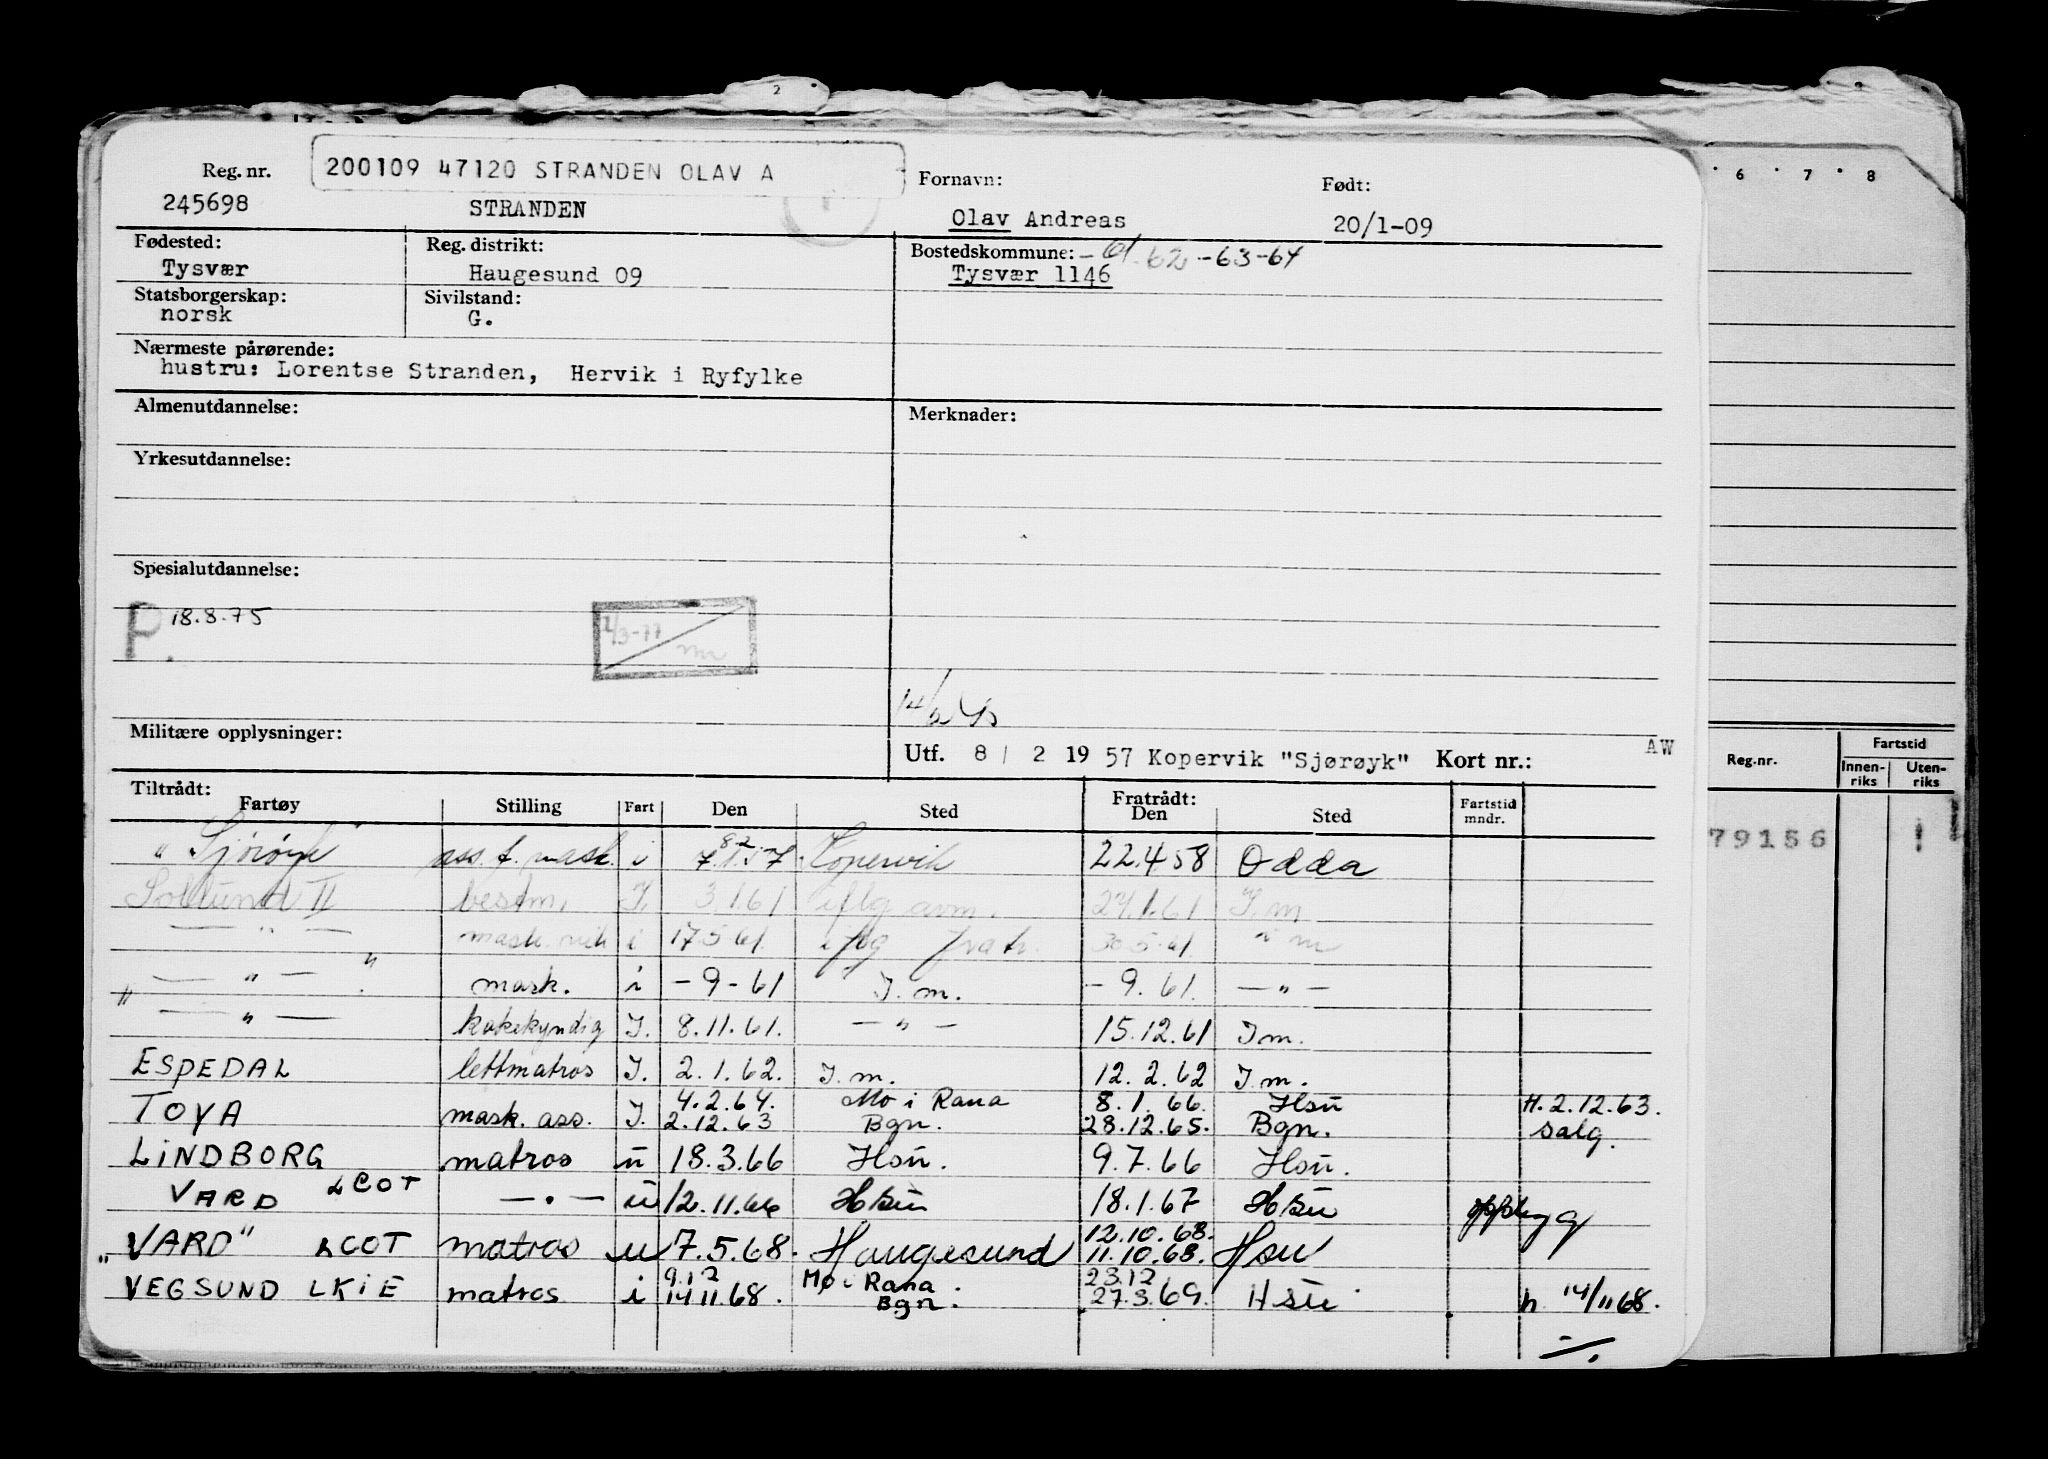 2
Reg. nr. 200109 47120 STRANDEN OLAV A Fornavn: Født:
245698 STRANDEN Olav Andreas 20/1-09
Fødested: Reg. distrikt: Bostedskommune: -61-62-63-64
Tysvær Haugesund 09 Tysvær 1146
Statsborgerskap: Sivilstand:
norsk G.
Nærmeste pårørende:
hustru: Lorentse Stranden, Hervik i Ryfylke
Almenutdannelse: Merknader:
Yrkesutdannelse:
Spesialutdannelse:
P. 18.8.75
1/3-77
Militære opplysninger:
Utf. 8/ 2 19 57 Kopervik "Sjørøyk" Kort nr.: AW
Tiltrådt: Fratrådt:
Fartøy Stilling Fart Den Sted Den Sted Fartstid mndr.
"Sjørøyk" ass. f. mask. i 8.2 7.1.57. Kopervik 22.4 58 Odda
Solsund II bestm. I. 3.1.61 iflg avm. 27.1.61 I. m
— " — mask. i 17.5 61. iflg fratr. 30.5.61. i m
— " — " mask. i -9-61 I. m. -9.61. — " —
" — " — kokekyndig I. 8.11.61. — " — 15.12.61 I m.
ESPEDAL lettmatros I. 2.1.62. I. m. 12.2.62 I. m.
4.2.64. Mo i Rana 8.1.66. Hsu H. 2.12.63.
TOYA mask. ass. I. 2.12.63 Bgn. 28.12.65. Bgn. salg.
LINDBORG matros u 18.3.66 Hsu. 9.7.66 Hsu.
VARD LCOT — " — u 12.11.66 Hsu 18.1.67 Hsu oppbygg
12.10.68.
"VARD" LCOT matros u 7.5.68. Haugesund 11.10.68. Hsu
9.12 Mo i Rana. 23.12
VEGSUND LKIE matros i 14.11.68. Bgn. 27.3.69. Hsu h. 14/11 68.
6 7 8
Reg.nr. Fartstid
Innen-riks Uten-riks
79156 !